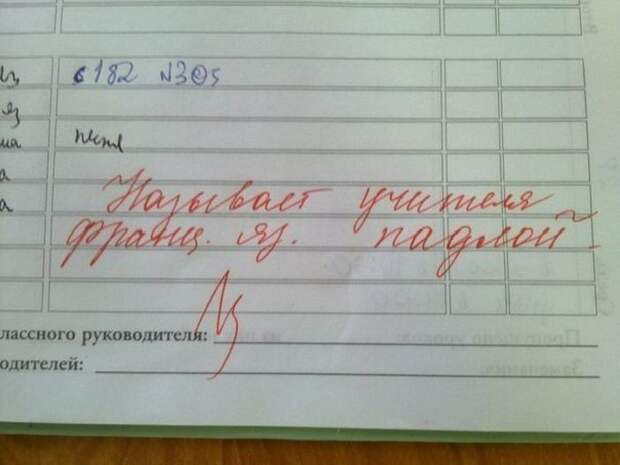 с 182 №305
песня
Называет учителя
франц. яз. падлой.
лассного руководителя:
одителей: